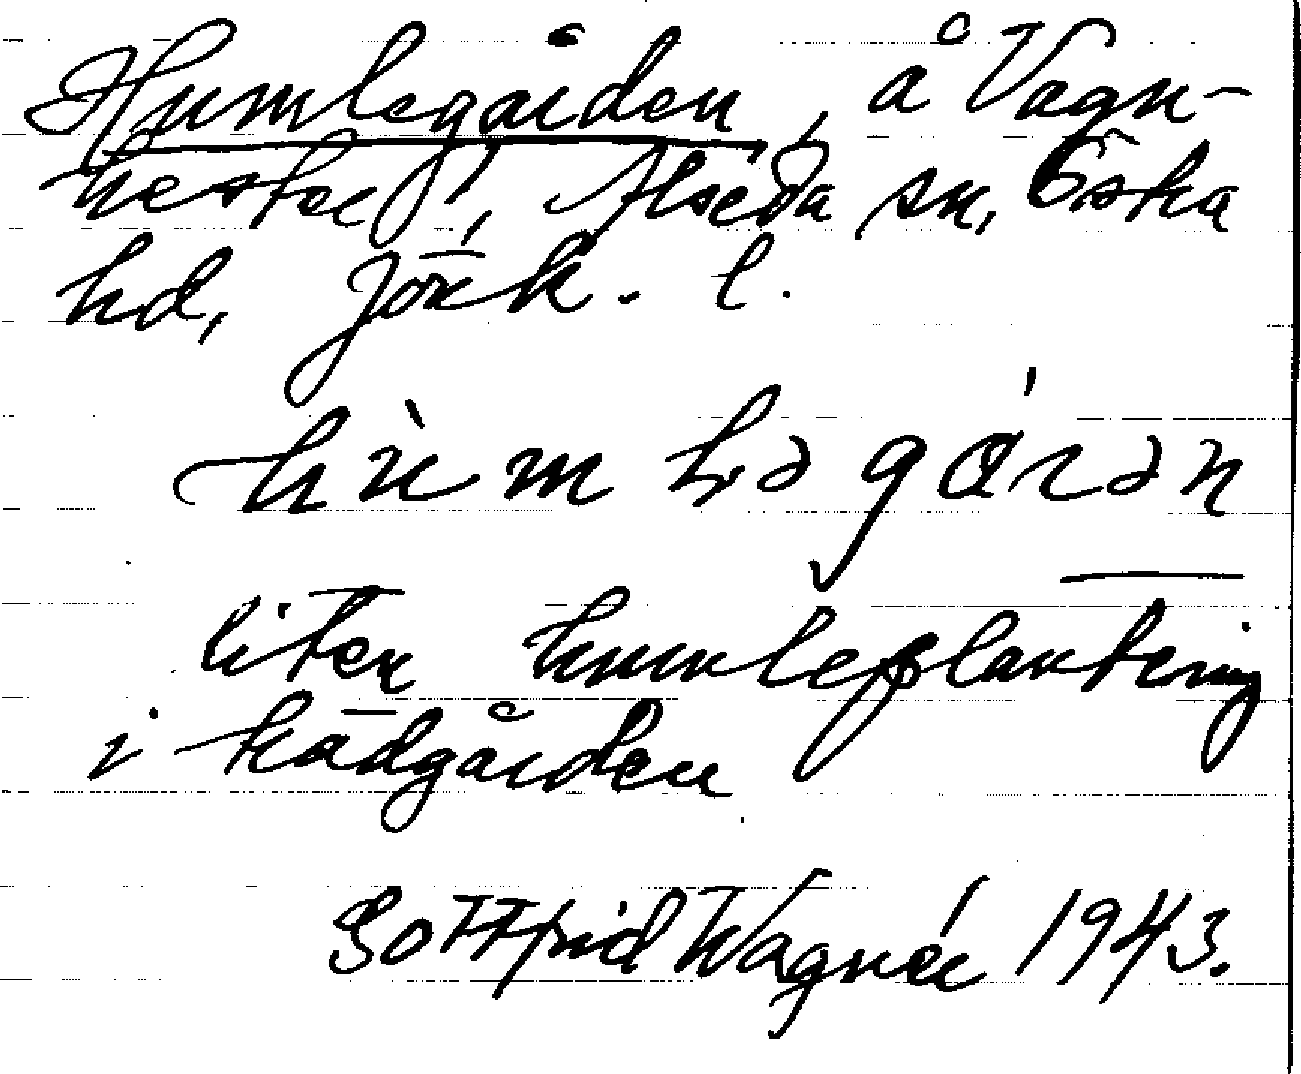 Humlegården, å Vagn-
hester, Alseda sn, Östra
hd, Jönk. l.
hùmləgɑ́rən
liten humleplantering
i trädgården
Gottfrid Wagnér 1943.